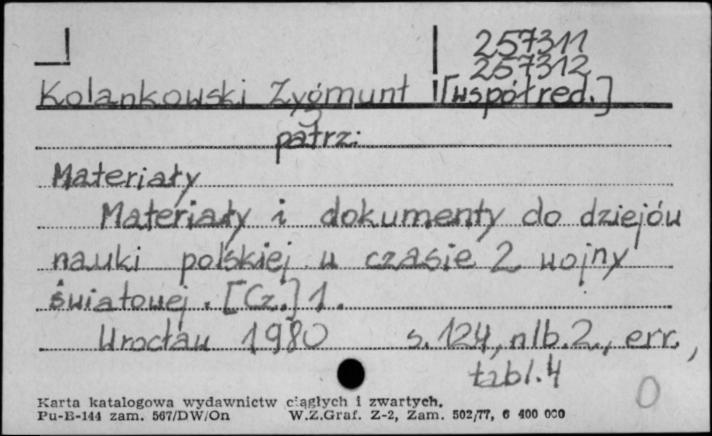 257311
257312
Kolankowski Zygmunt [współred.]
patrz:
Materiały
Materiały i dokumenty do dziejów
nauki polskiej w czasie 2 wojny
światowej. [Cz.] 1.
Wrocław 1980 s. 124, nlb. 2., err.,
tabl. 4
0
Karta katalogowa wydawnictw ciągłych i zwartych.
Pu-B-144 zam. 567/DW/On W.Z.Graf. Z-2, Zam. 502/77, 6 400 000